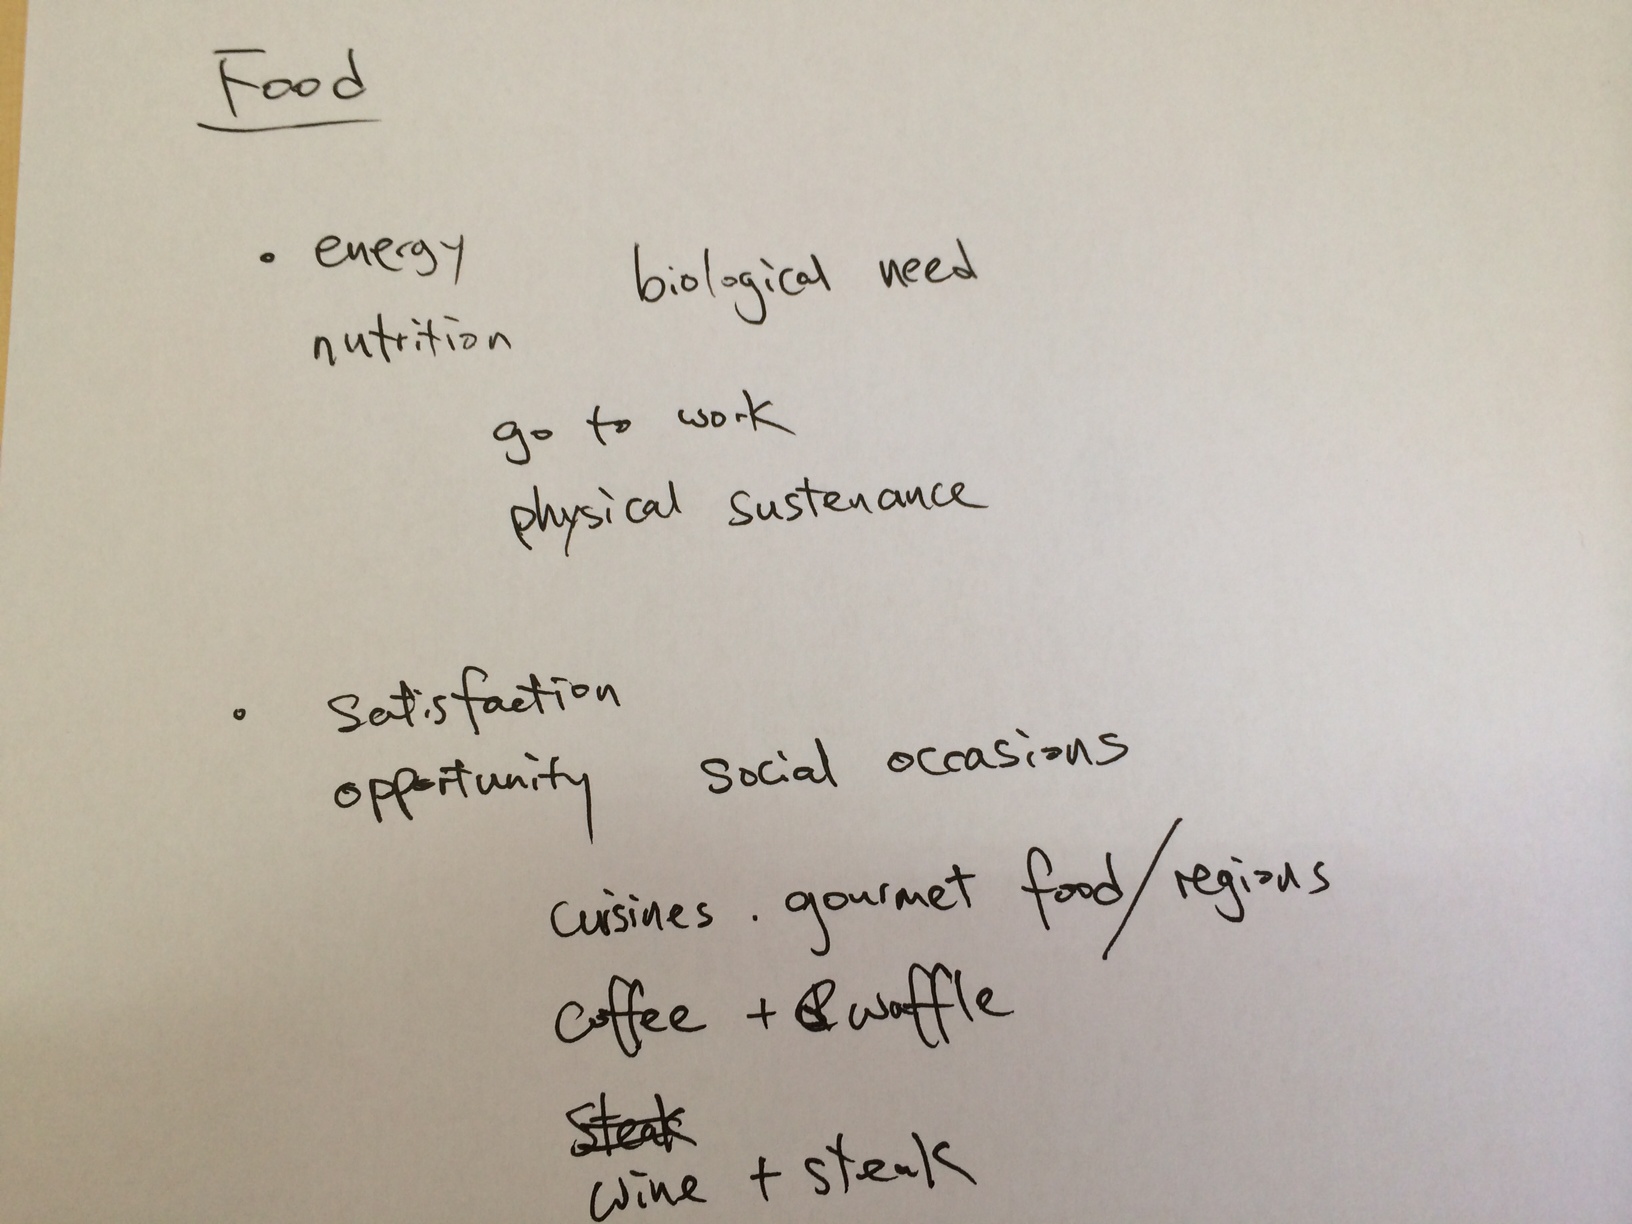 Food
• energy biological need
nutrition
go to work
physical sustenance
• satisfaction
opportunity social occasions
cuisines . gourmet food/regions
coffee + waffle
steak
wine + steak